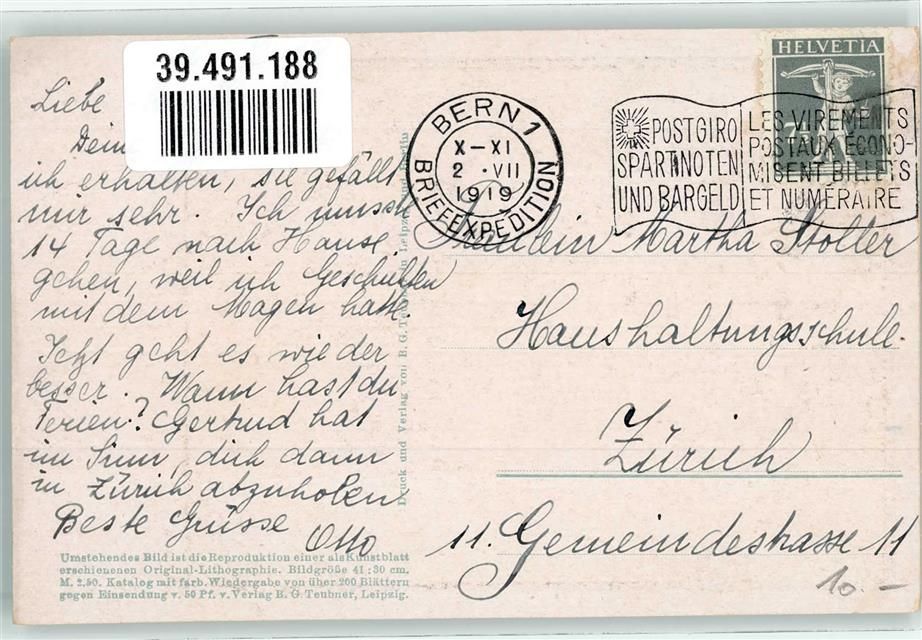 39.491.188
Liebe
Dein
ich erhalten, sie gefällt
mir sehr. Ich musste
14 Tage nach Hause
gehen, weil ich Geschichten
mit dem Magen hatte.
Jetzt geht es wieder
besser. Wann hast du
Ferien? Gertrud hat
im Sinn, dich dann
in Zürich abzuholen
Beste Grüsse
Otto
Umstehendes Bild ist die Reproduktion einer als Kunstblatt
erschienenen Original-Lithographie. Bildgröße 41:30 cm.
M. 2,50. Katalog mit farb. Wiedergabe von über 200 Blättern
gegen Einsendung v. 50 Pf. v. Verlag B. G. Teubner, Leipzig.
Druck und Verlag von B. G. Teubner in Leipzig und Berlin
BERN 1
X-XI
2. VII
1919
BRIEFEXPEDITION
POSTGIRO
SPART NOTEN
UND BARGELD
LES VIREMENTS
POSTAUX ECONO-
MISENT BILLETS
ET NUMÉRAIRE
HELVETIA
7½
Fräulein Martha Stoller
Haushaltungsschule.
Zürich
11. Gemeindestrasse 11
10.-